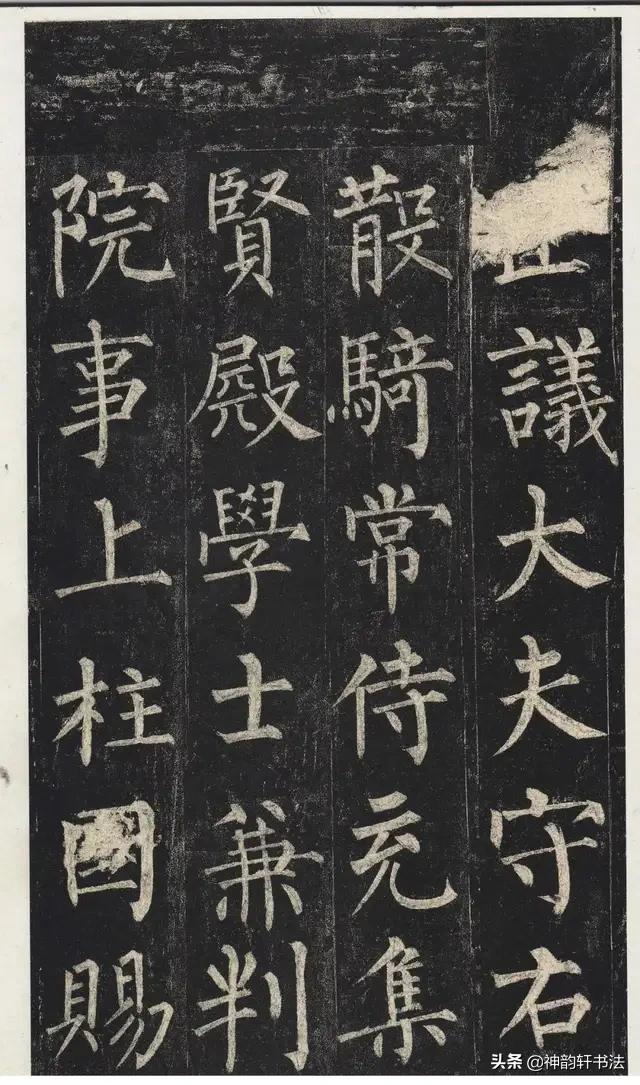 正議大夫守右
散騎常侍充集
賢殿學士兼判
院事上柱國賜
头条 @神韵轩书法